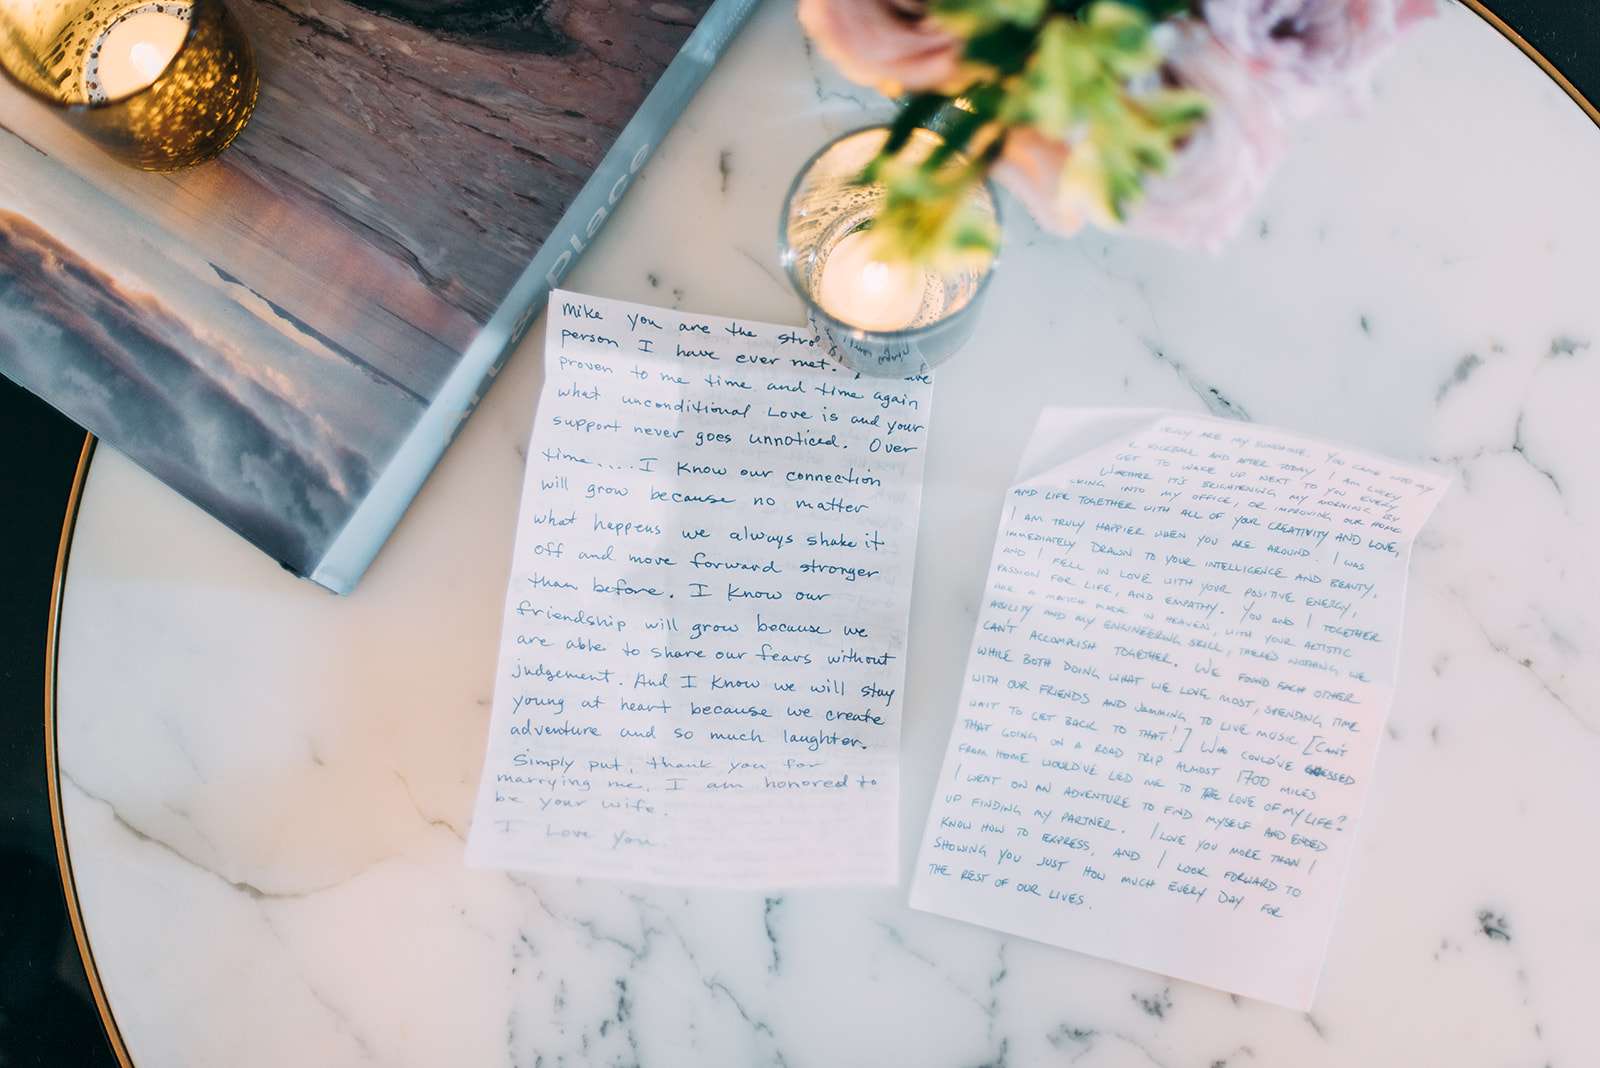 Place
Mike you are the
person I have ever met.
proven to me time and time again
what unconditional Love is and your
support never goes unnoticed. Over
time.... I know our connection
will grow because no matter
what happens we always shake it
off and move forward stronger
than before. I know our
friendship will grow because we
are able to share our fears without
judgement. And I know we will stay
young at heart because we create
adventure and so much laughter.
Simply put, thank you for
marrying me. I am honored to
be your wife.
I Love you.
TRULY ARE MY SUNSHINE. YOU CAME INTO MY
KICKBALL AND AFTER TODAY I AM LUCKY
GET TO WAKE UP NEXT TO YOU EVERY
WHETHER IT'S BRIGHTENING MY MORNING BY
INTO MY OFFICE, OR IMPROVING OUR HOME
AND LIFE TOGETHER WITH ALL OF YOUR CREATIVITY AND LOVE,
I AM TRULY HAPPIER WHEN YOU ARE AROUND. I WAS
IMMEDIATELY DRAWN TO YOUR INTELLIGENCE AND BEAUTY,
AND I FELL IN LOVE WITH YOUR POSITIVE ENERGY,
PASSION FOR LIFE, AND EMPATHY. YOU AND I TOGETHER
ARE A MATCH MADE IN HEAVEN, WITH YOUR ARTISTIC
ABILITY AND MY ENGINEERING SKILL, THERE'S NOTHING WE
CAN'T ACCOMPLISH TOGETHER. WE FOUND EACH OTHER
WHILE BOTH DOING WHAT WE LOVE MOST, SPENDING TIME
WITH OUR FRIENDS AND JAMMING TO LIVE MUSIC. [CAN'T
WAIT TO GET BACK TO THAT!] WHO COULD'VE GUESSED
THAT GOING ON A ROAD TRIP ALMOST 1700 MILES
FROM HOME WOULD'VE LED ME TO THE LOVE OF MY LIFE?
I WENT ON AN ADVENTURE TO FIND MYSELF AND ENDED
UP FINDING MY PARTNER. I LOVE YOU MORE THAN I
KNOW HOW TO EXPRESS, AND I LOOK FORWARD TO
SHOWING YOU JUST HOW MUCH EVERY DAY FOR
THE REST OF OUR LIVES.